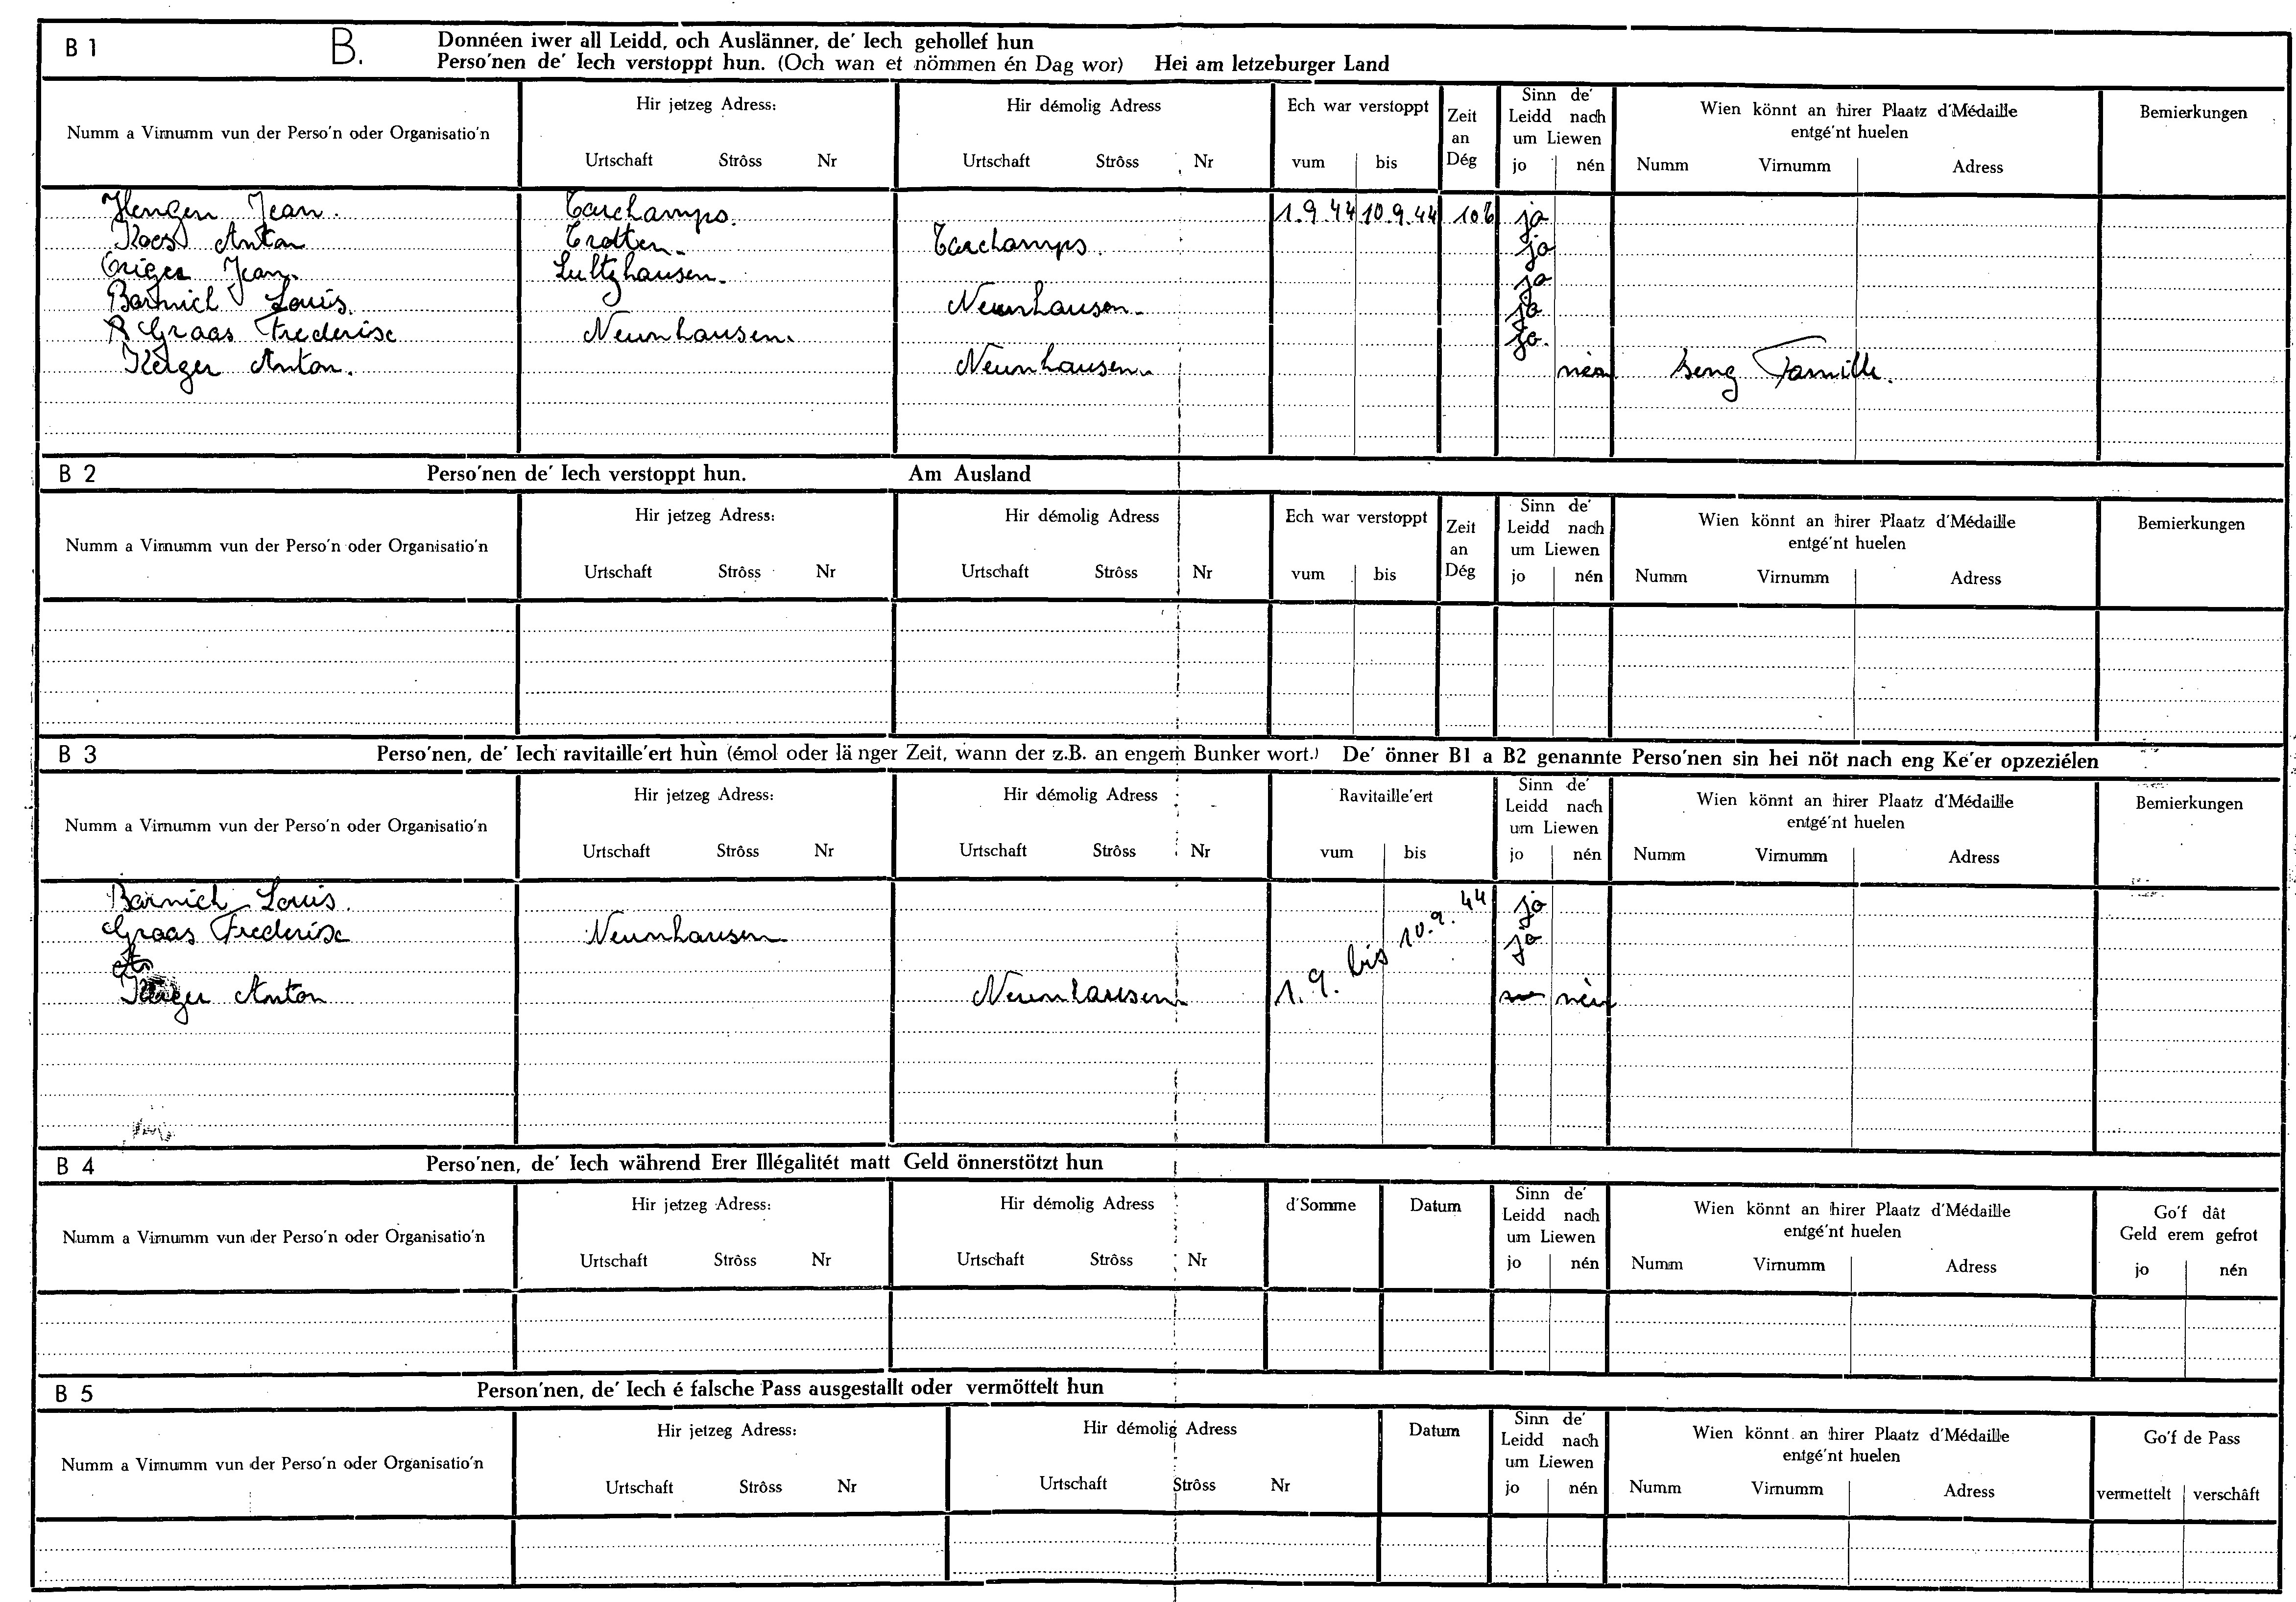 B 1 B. Donnéen iwer all Leidd, och Auslänner, de' Iech gehollef hun
Perso'nen de' Iech verstoppt hun. (Och wan et nömmen én Dag wor) Hei am letzeburger Land
Numm a Virnumm vun der Perso'n oder Organisatio'n
Hir jetzeg Adress:
Urtschaft Strôss Nr
Hir démolig Adress
Urtschaft Strôss Nr
Ech war verstoppt
vum bis
Zeit
an
Dég
Sinn de'
Leidd nach
um Liewen
jo nén
Wien könnt an hirer Plaatz d'Médaille
entgé'nt huelen
Numm Virnumm Adress
Bemierkungen
Jean. Tarchamps. 1.9.44 10.9.44 ja
Anton Tarchamps. ja
Jean. Lultzhausen. ja
Barnich Louis. Neunhausen. ja
Graas Frederisc Neunhausen. ja.
Kerger Anton. Neunhausen. nén seng Famill.
B 2 Perso'nen de' Iech verstoppt hun. Am Ausland
Numm a Virnumm vun der Perso'n oder Organisatio'n
Hir jetzeg Adress:
Urtschaft Strôss Nr
Hir démolig Adress
Urtschaft Strôss Nr
Ech war verstoppt
vum bis
Zeit
an
Dég
Sinn de'
Leidd nach
um Liewen
jo nén
Wien könnt an hirer Plaatz d'Médaille
entgé'nt huelen
Numm Virnumm Adress
Bemierkungen
B 3 Perso'nen, de' Iech ravitaille'ert hun (émol oder länger Zeit, wann der z.B. an engem Bunker wort.) De' önner B1 a B2 genannte Perso'nen sin hei nöt nach eng Ke'er opzeziélen
Numm a Virnumm vun der Perso'n oder Organisatio'n
Hir jetzeg Adress:
Urtschaft Strôss Nr
Hir démolig Adress
Urtschaft Strôss Nr
Ravitaille'ert
vum bis
Sinn de'
Leidd nach
um Liewen
jo nén
Wien könnt an hirer Plaatz d'Médaille
entgé'nt huelen
Numm Virnumm Adress
Bemierkungen
Barnich Louis. Ja
Graas Frederisc Neunhausen Ja
1.9. bis 10.9.44
Anton Neunhausen nein
B 4 Perso'nen, de' Iech während Erer Illégalitét matt Geld önnerstötzt hun
Numm a Virnumm vun der Perso'n oder Organisatio'n
Hir jetzeg Adress:
Urtschaft Strôss Nr
Hir démolig Adress
Urtschaft Strôss Nr
d'Somme
Datum
Sinn de'
Leidd nach
um Liewen
jo nén
Wien könnt an hirer Plaatz d'Médaille
entgé'nt huelen
Numm Virnumm Adress
Go'f dât
Geld erem gefrot
jo nén
B 5 Person'nen, de' Iech é falsche Pass ausgestallt oder vermöttelt hun
Numm a Virnumm vun der Perso'n oder Organisatio'n
Hir jetzeg Adress:
Urtschaft Strôss Nr
Hir démolig Adress
Urtschaft Strôss Nr
Datum
Sinn de'
Leidd nach
um Liewen
jo nén
Wien könnt an hirer Plaatz d'Médaille
entgé'nt huelen
Numm Virnumm Adress
Go'f de Pass
vermettelt verschâft